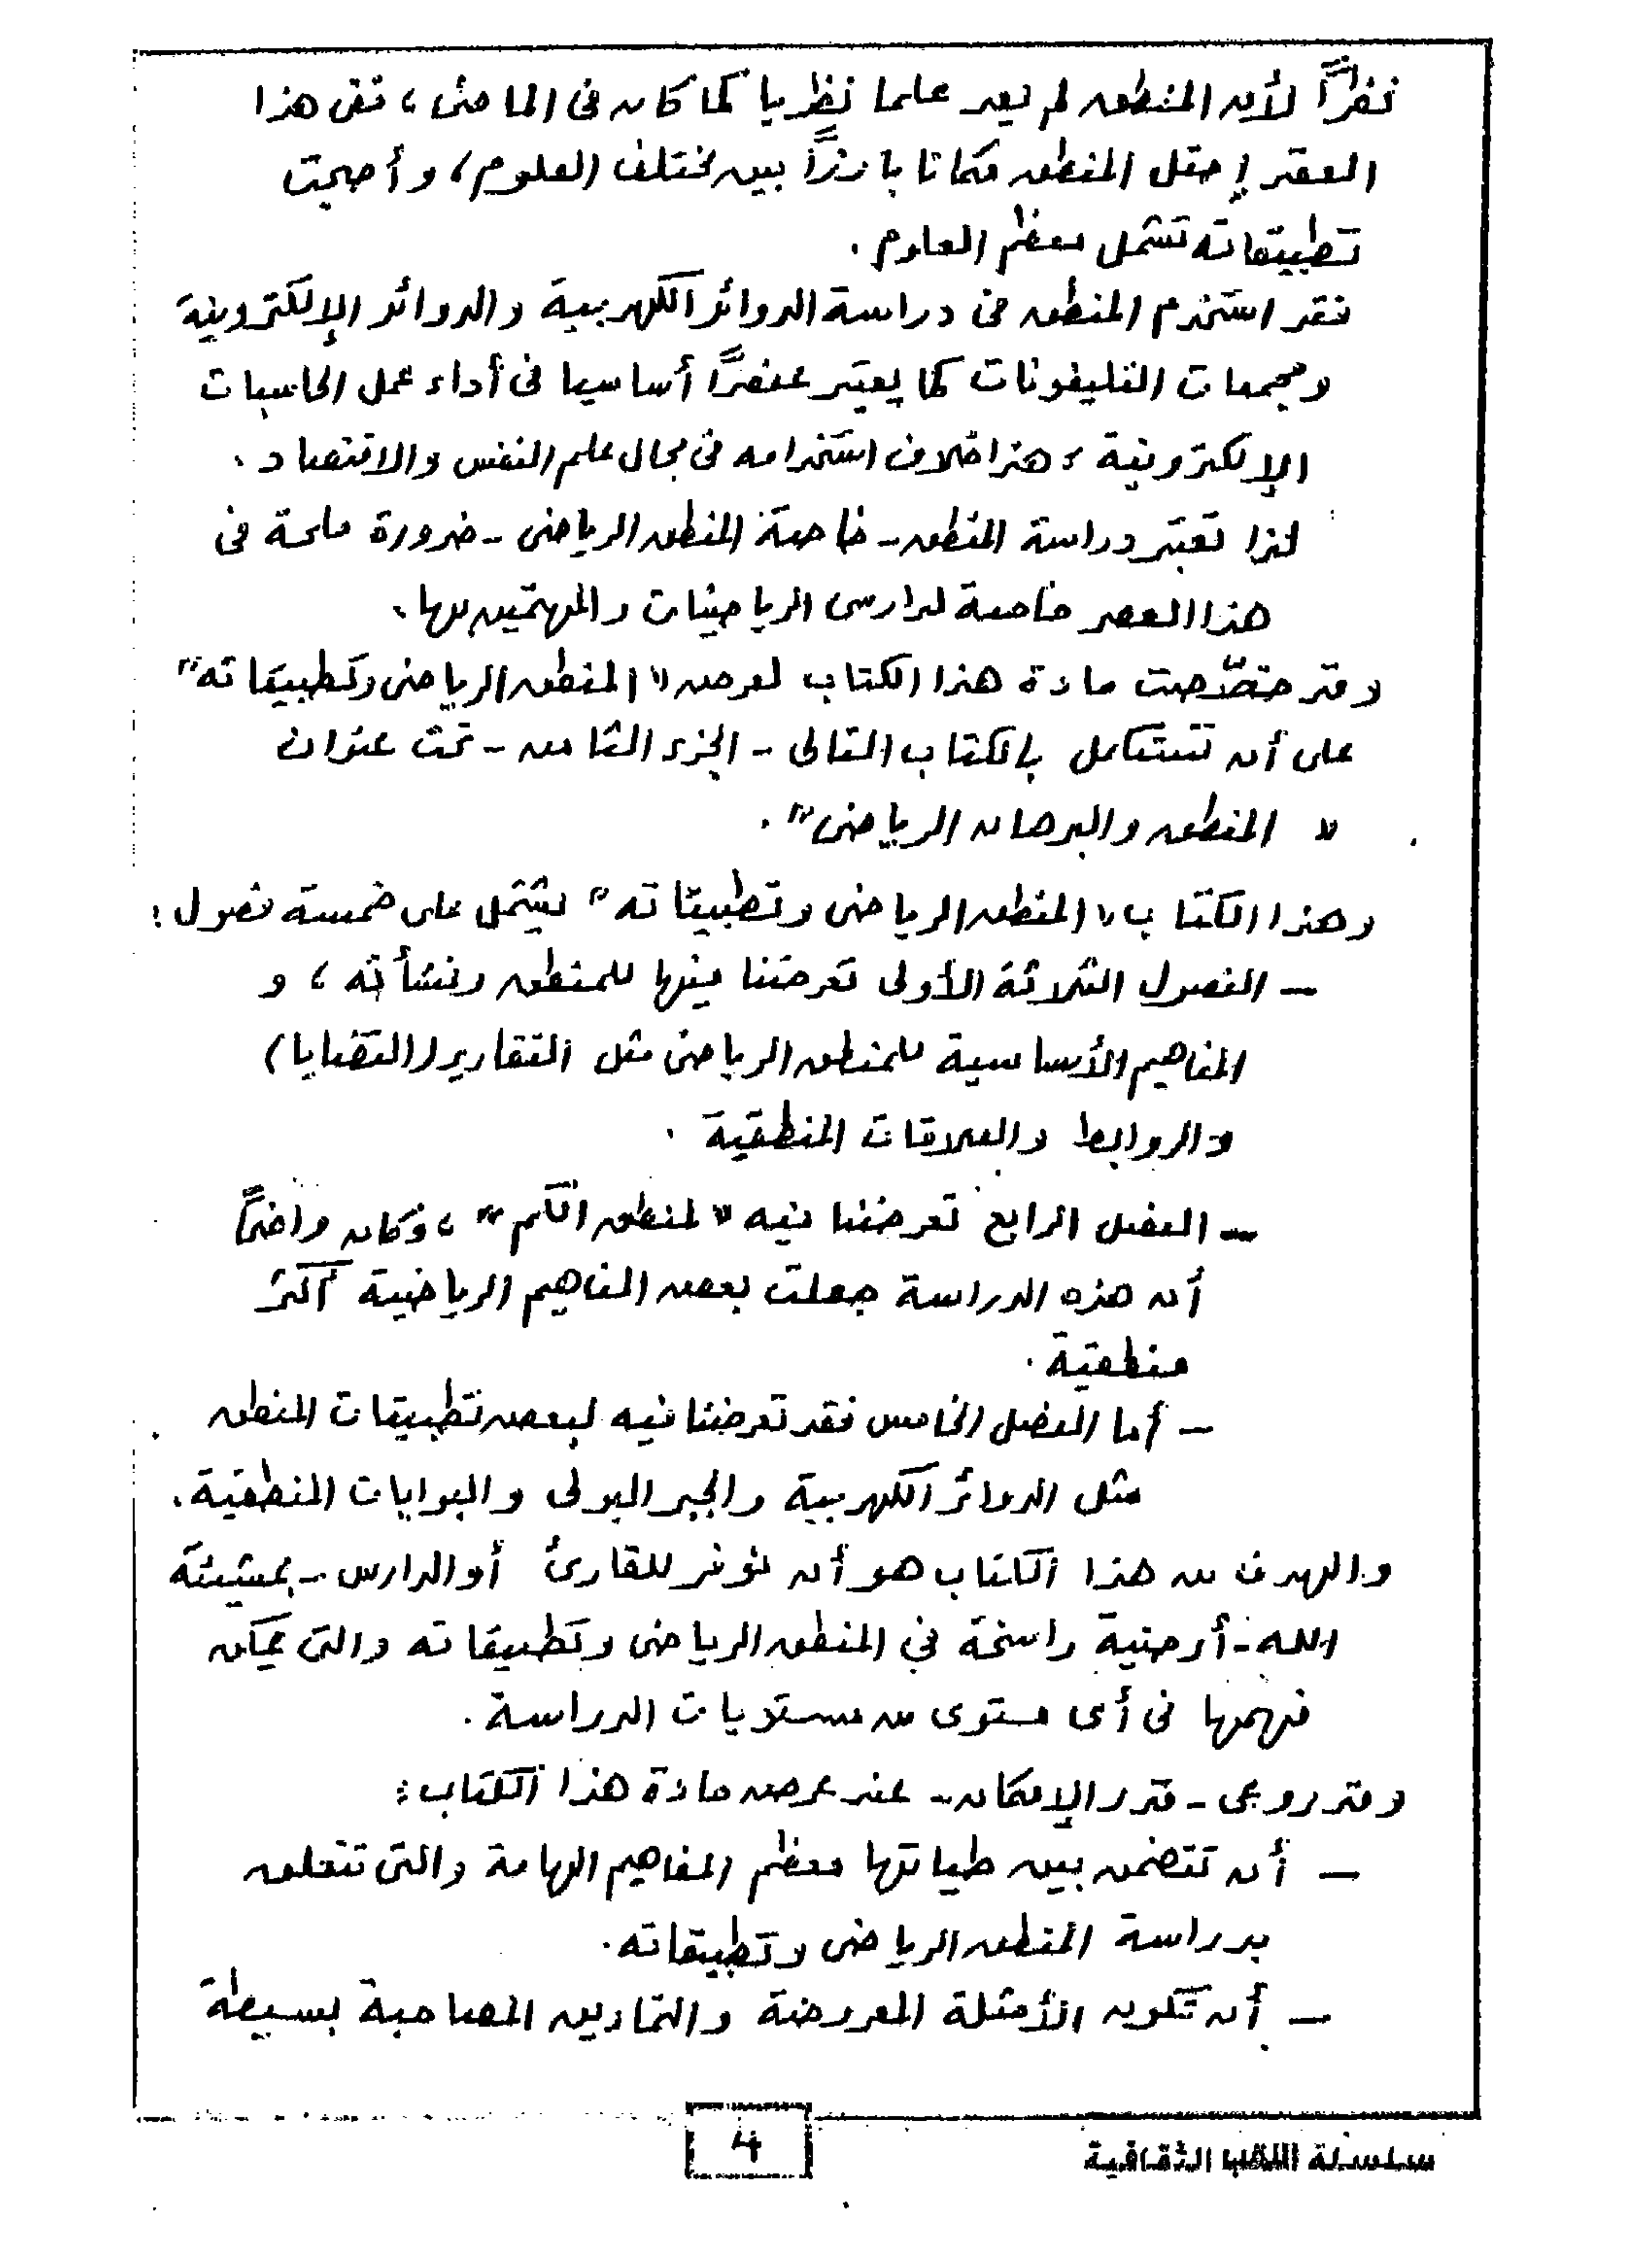 نظراً لأن المنطق لم يعد علما نظريا كما كان فى الماضى، ففى هذا
العصر إحتل المنطق مكانا بارزاً بين مختلف العلوم، وأصبحت
تطبيقاته تشمل معظم العلوم.
فقد استخدم المنطق فى دراسة الدوائر الكهربية والدوائر الإلكترونية
ومجمعات التليفونات كما يعتبر عنصراً أساسيا فى أداء عمل الحاسبات
الإلكترونية، هذا خلاف استخدامه فى مجال علم النفس والاقتصاد.
لذا تعتبر دراسة المنطق - خاصة المنطق الرياضى - ضرورة ملحة فى
هذا العصر خاصة لدارسى الرياضيات والمهتمين بها.
وقد خصّصت مادة هذا الكتاب لعرض " المنطق الرياضى وتطبيقاته "
على أن تستكمل بالكتاب التالى - الجزء الثامن - تحت عنوان
" المنطق والبرهان الرياضى ".
وهذا الكتاب " المنطق الرياضى وتطبيقاته " يشتمل على خمسة فصول:
- الفصول الثلاثة الأولى تعرضنا فيها للمنطق ونشأته، و
المفاهيم الأساسية للمنطق الرياضى مثل التقارير (القضايا)
والروابط والعلاقات المنطقية.
- الفصل الرابع تعرضنا فيه " لمنطق الكم "، وكان واضحاً
أن هذه الدراسة جعلت بعض المفاهيم الرياضية أكثر
منطقية.
- أما الفصل الخامس فقد تعرضنا فيه لبعض تطبيقات المنطق
مثل الدوائر الكهربية والجبر البولى والبوابات المنطقية.
والهدف من هذا الكتاب هو أن نوفر للقارئ أو الدارس - بمشيئة
الله - أرضية راسخة في المنطق الرياضى وتطبيقاته والتى يمكن
فهمها فى أى مستوى من مستويات الدراسة.
وقد روعى - قدر الإمكان - عند عرض مادة هذا الكتاب:
- أن تتضمن بين طياتها معظم المفاهيم الهامة والتى تتعلق
بدراسة المنطق الرياضى وتطبيقاته.
- أن تكون الأمثلة المعروضة والتمارين المصاحبة بسيطة
4
سلسلة الكتب الثقافية